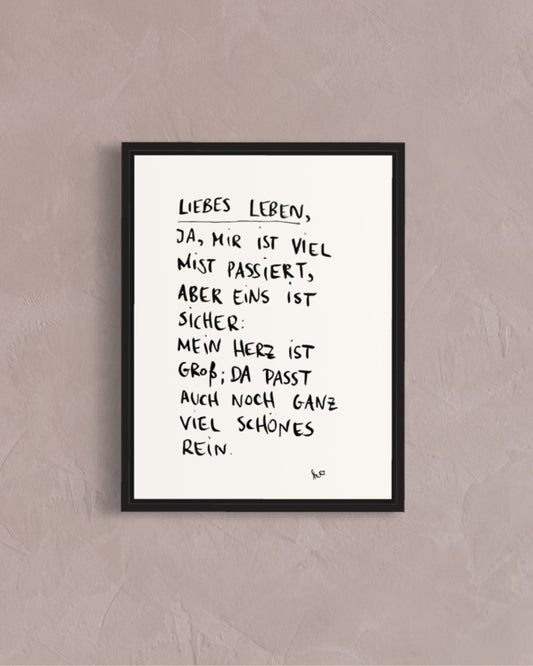 LIEBES LEBEN,
JA, MIR IST VIEL
MIST PASSIERT,
ABER EINS IST
SICHER:
MEIN HERZ IST
GROß; DA PASST
AUCH NOCH GANZ
VIEL SCHÖNES
REIN.